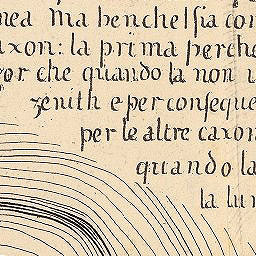 nea ma benche lsia con
axon: la prima perche
gor che quando la non v
zenith e per conseque
per le altre caxon
quando la
la lun